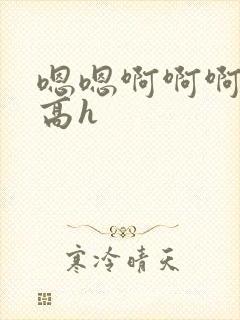 嗯嗯啊啊啊
高h
寒冷晴天